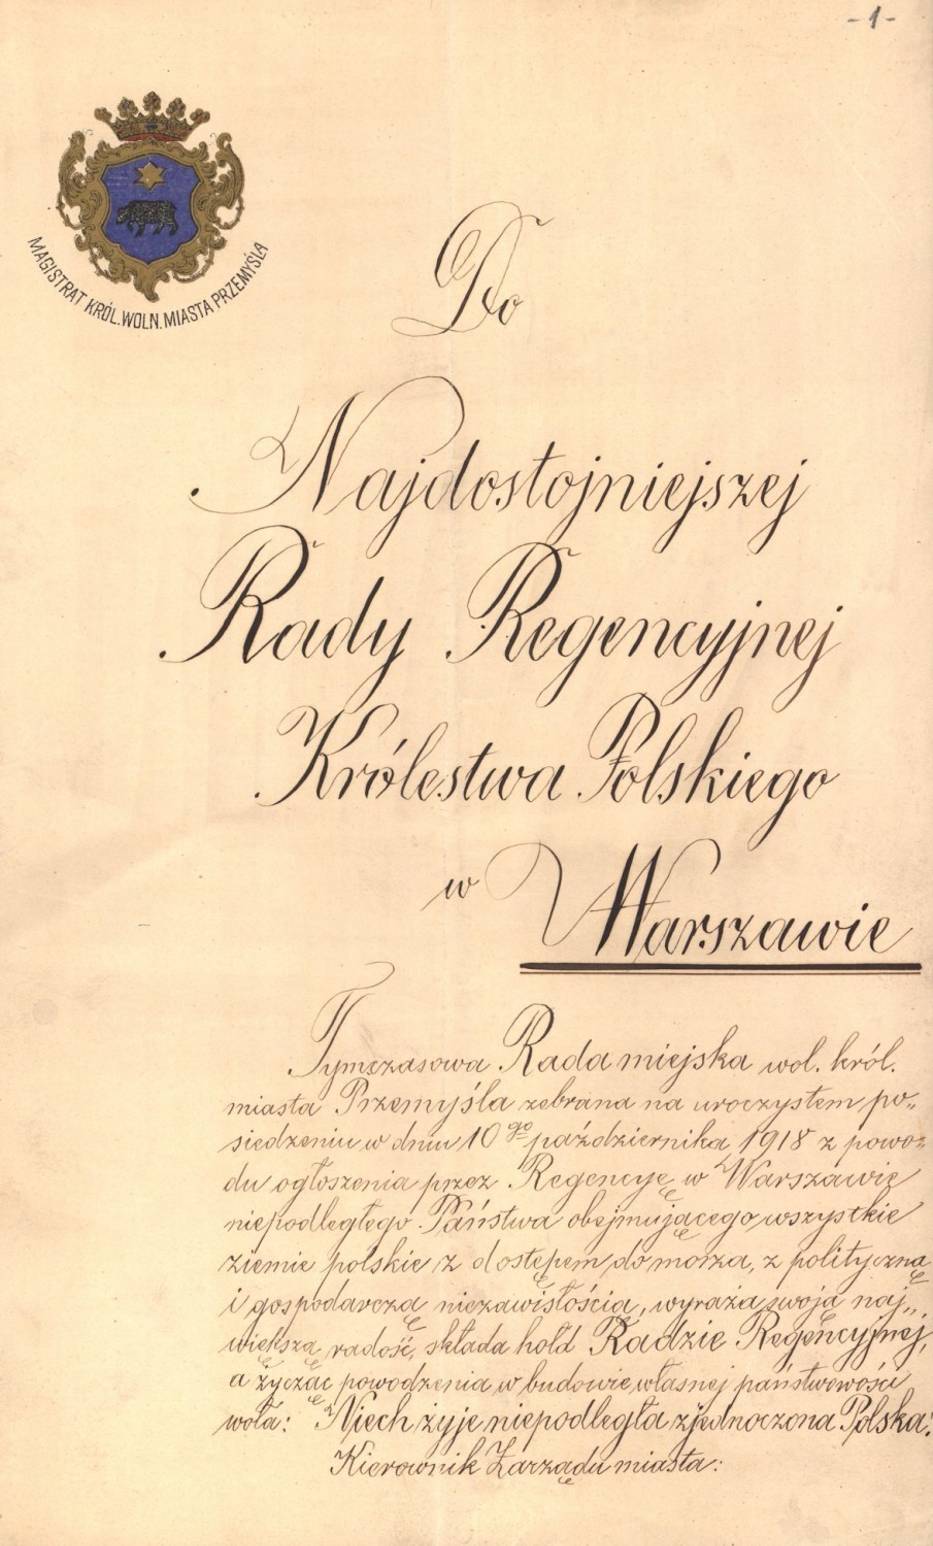 -1-
MAGISTRAT KRÓL. WOLN. MIASTA PRZEMYŚLA
Do
Najdostojniejszej
Rady Regencyjnej
Królestwa Polskiego
w Warszawie
Tymczasowa Rada miejska wol. król.
miasta Przemyśla zebrana na uroczystem po„
siedzeniu w dniu 10go października 1918 z powo„
du ogłoszenia przez Regencyę w Warszawie
niepodległego Państwa obejmującego wszystkie
ziemie polskie z dostępem do morza, z polityczną
i gospodarczą niezawisłością, wyraża swoją naj„
większą radość, składa hołd Radzie Regencyjnej,
a życząc powodzenia w budowie własnej państwowości
woła: Niech żyje niepodległa zjednoczona Polska!
Kierownik Zarządu miasta: